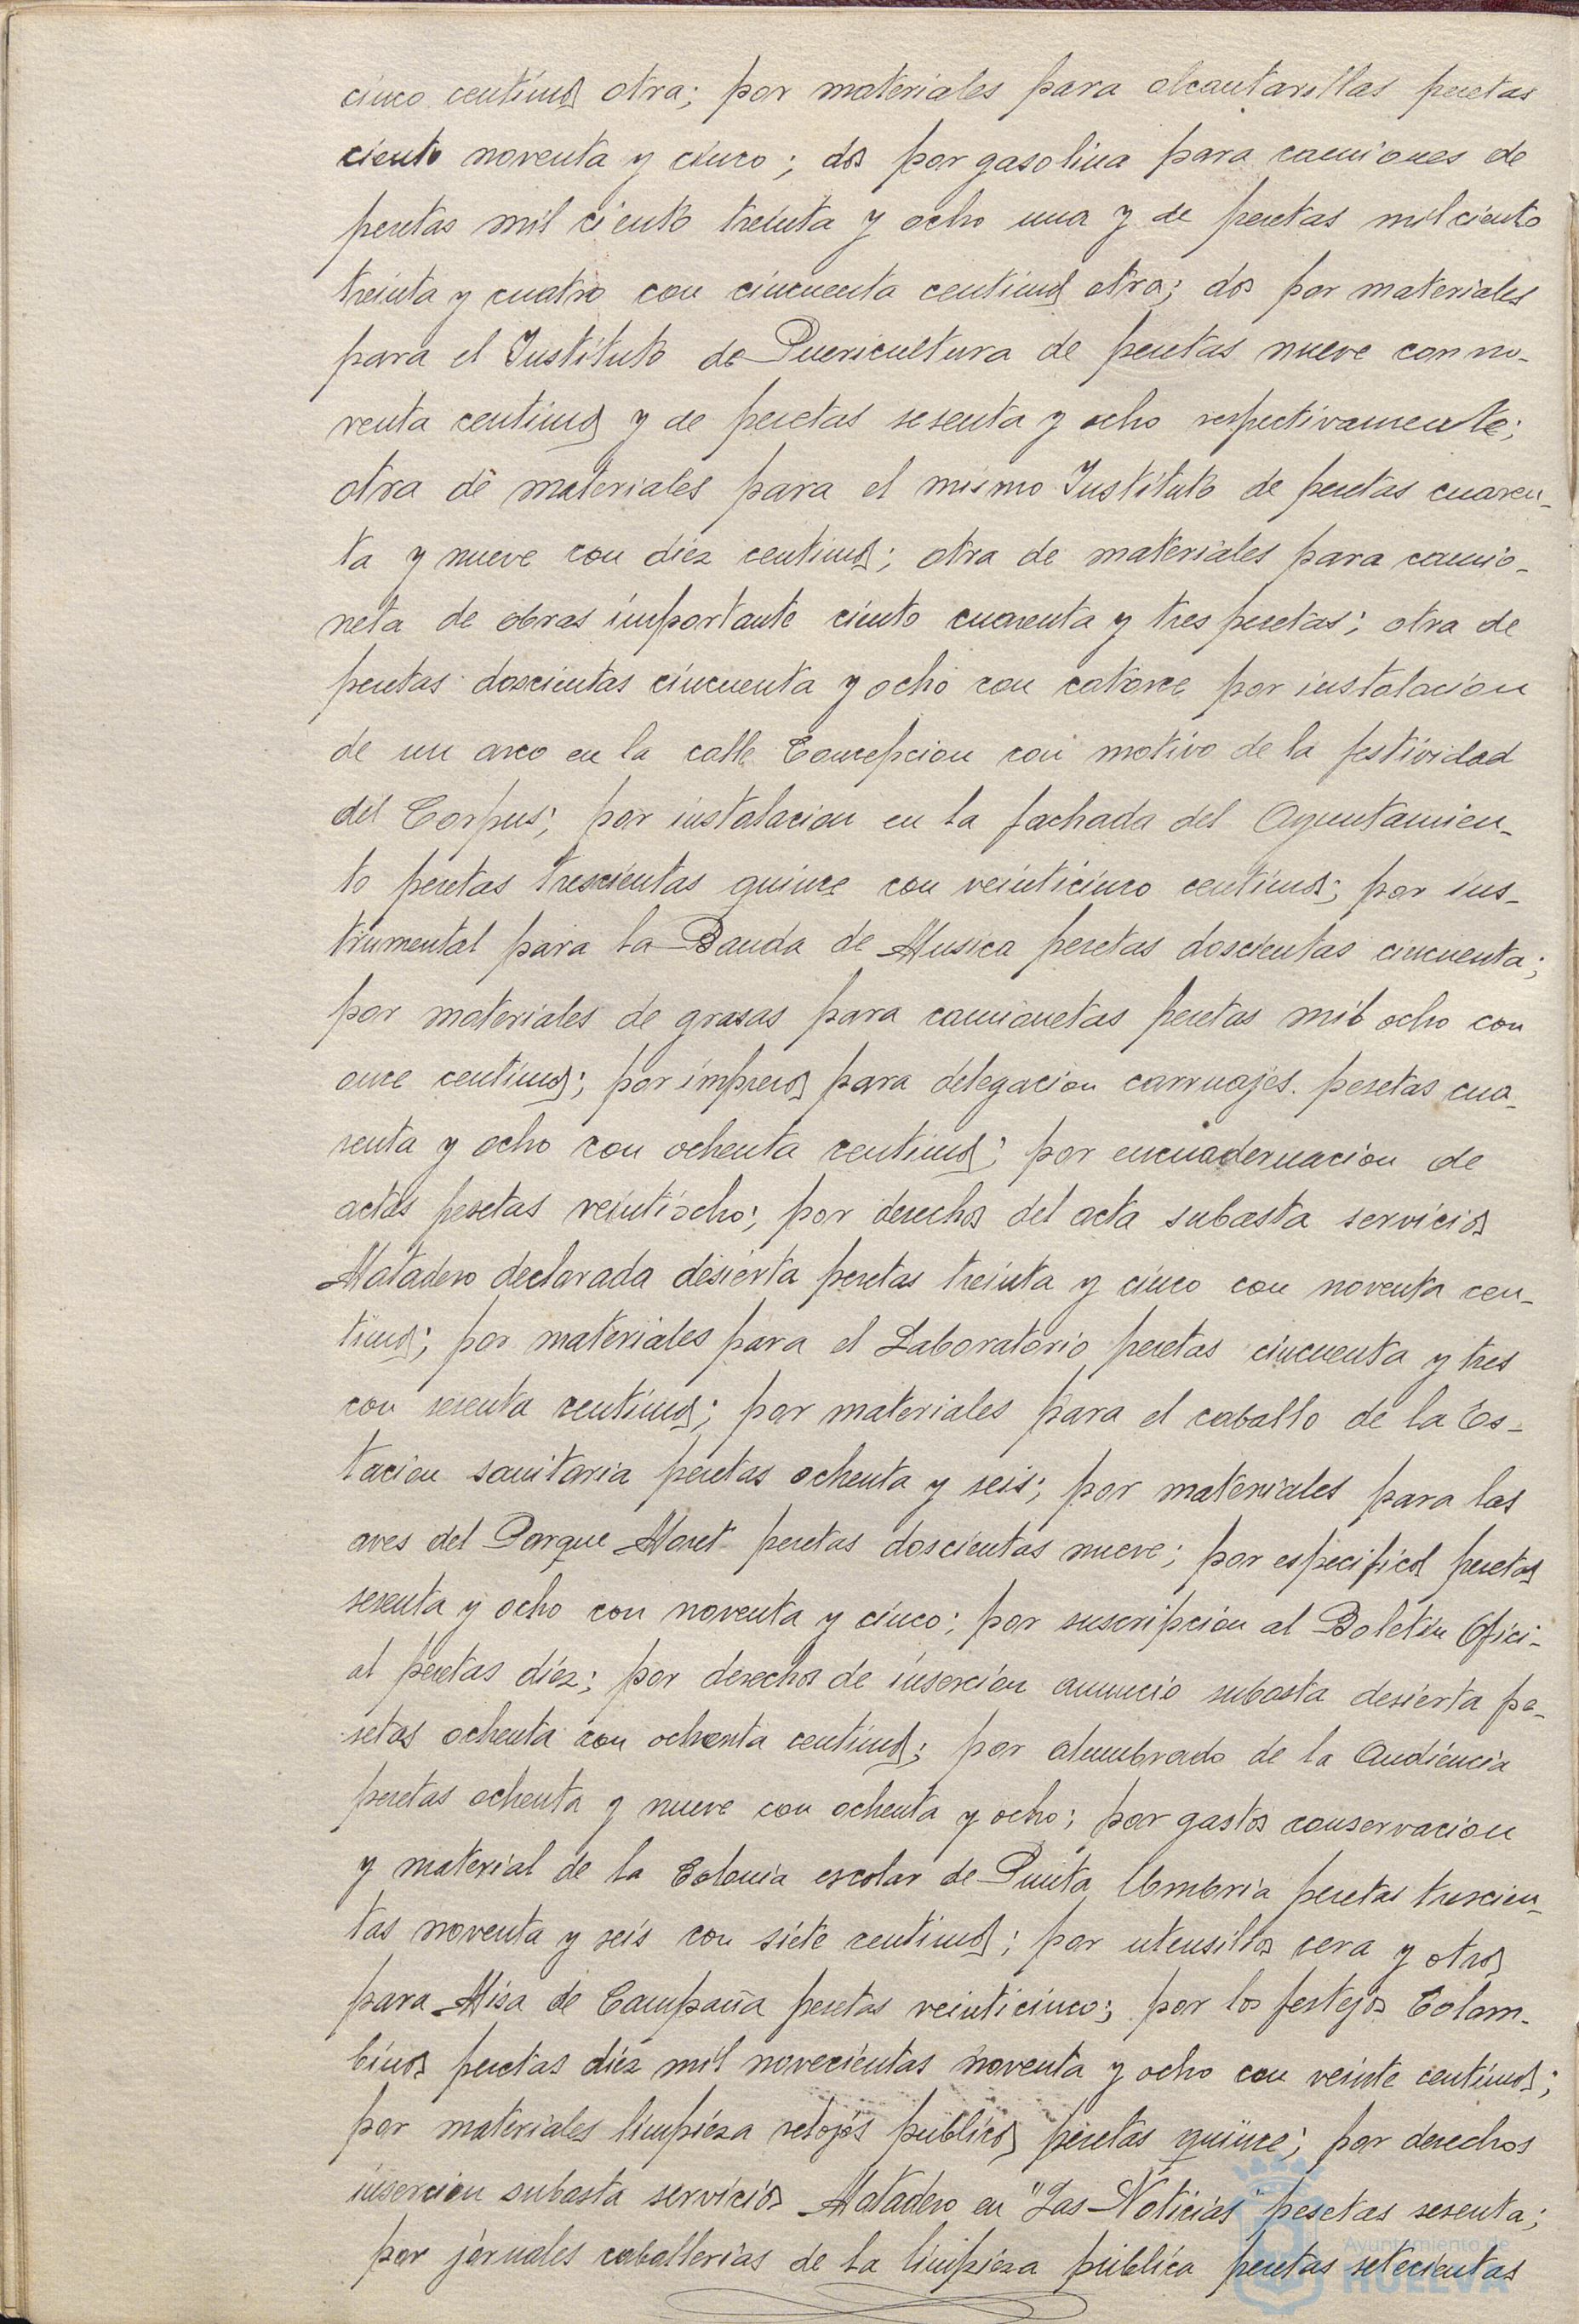 cinco centimos otra; por materiales para alcantarillas pesetas
ciento noventa y cinco; dos por gasolina para camiones de
pesetas mil ciento treinta y ocho una y de pesetas mil ciento
treinta y cuatro con cincuenta centimos otra; dos por materiales
para el Instituto de Puericultura de pesetas nueve con no-
venta centimos y de pesetas sesenta y ocho respectivamente;
otra de materiales para el mismo Instituto de pesetas cuaren-
ta y nueve con diez centimos; otra de materiales para camio-
neta de obras importante ciento cuarenta y tres pesetas; otra de
pesetas doscientas cincuenta y ocho con catorce por instalacion
de un arco en la calle Concepcion con motivo de la festividad
del Corpus; por instalacion en la fachada del Ayuntamien-
to pesetas trescientas quince con veinticinco centimos; por ins-
trumental para la Banda de Musica pesetas doscientas cincuenta;
por materiales de grasas para camionetas pesetas mil ocho con
once centimos; por impresos para delegacion carruajes. pesetas cua-
renta y ocho con ochenta centimos; por encuadernacion de
actas pesetas veintiocho; por derechos del acta subasta servicios
Matadero declarada desierta pesetas treinta y cinco con noventa cen-
timos; por materiales para el Laboratorio pesetas cincuenta y tres
con sesenta centimos; por materiales para el caballo de la Es-
tacion sanitaria pesetas ochenta y seis; por materiales para las
aves del Parque Moret pesetas doscientas nueve; por especificos pesetas
sesenta y ocho con noventa y cinco; por suscripcion al Boletin Ofici-
al pesetas diez; por derechos de insercion anuncio subasta desierta pe-
setas ochenta con ochenta centimos; por alumbrado de la Audiencia
pesetas ochenta y nueve con ochenta y ocho; por gastos conservacion
y material de la Colonia escolar de Punta Umbria pesetas trescien-
tas noventa y seis con siete centimos; por utensilios cera y otros
para Misa de Campaña pesetas veinticinco; por los festejos Colom-
binos pesetas diez mil novecientas noventa y ocho con veinte centimos;
por materiales limpieza relojes publicos pesetas quince; por derechos
insercion subasta servicios Matadero en "Las Noticias" pesetas sesenta;
por jornales caballerias de la limpieza publica pesetas setecientas
Ayuntamiento de
HUELVA